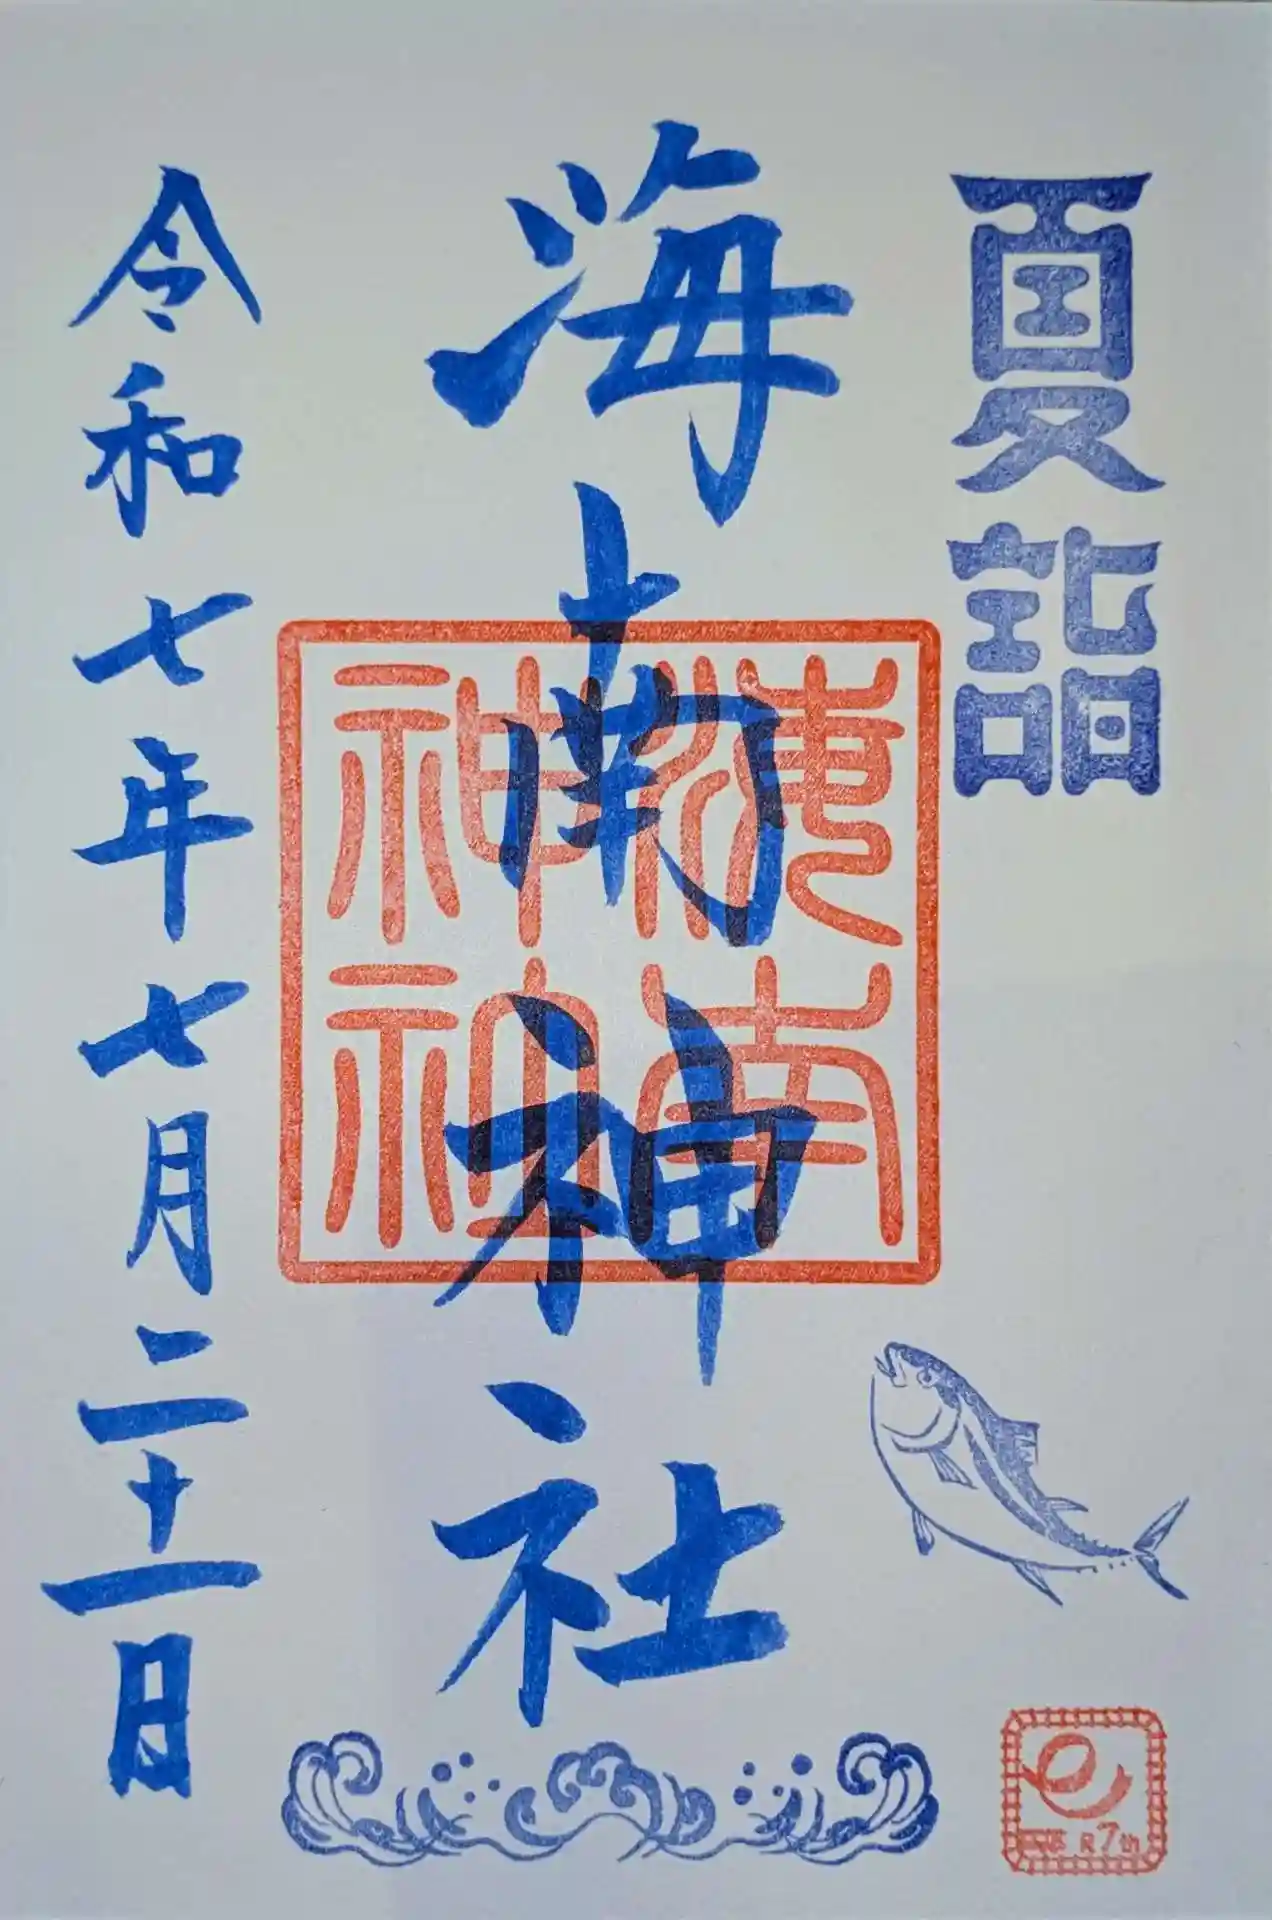 夏詣
海南神社
海南
神社
令和七年七月二十一日
R7th